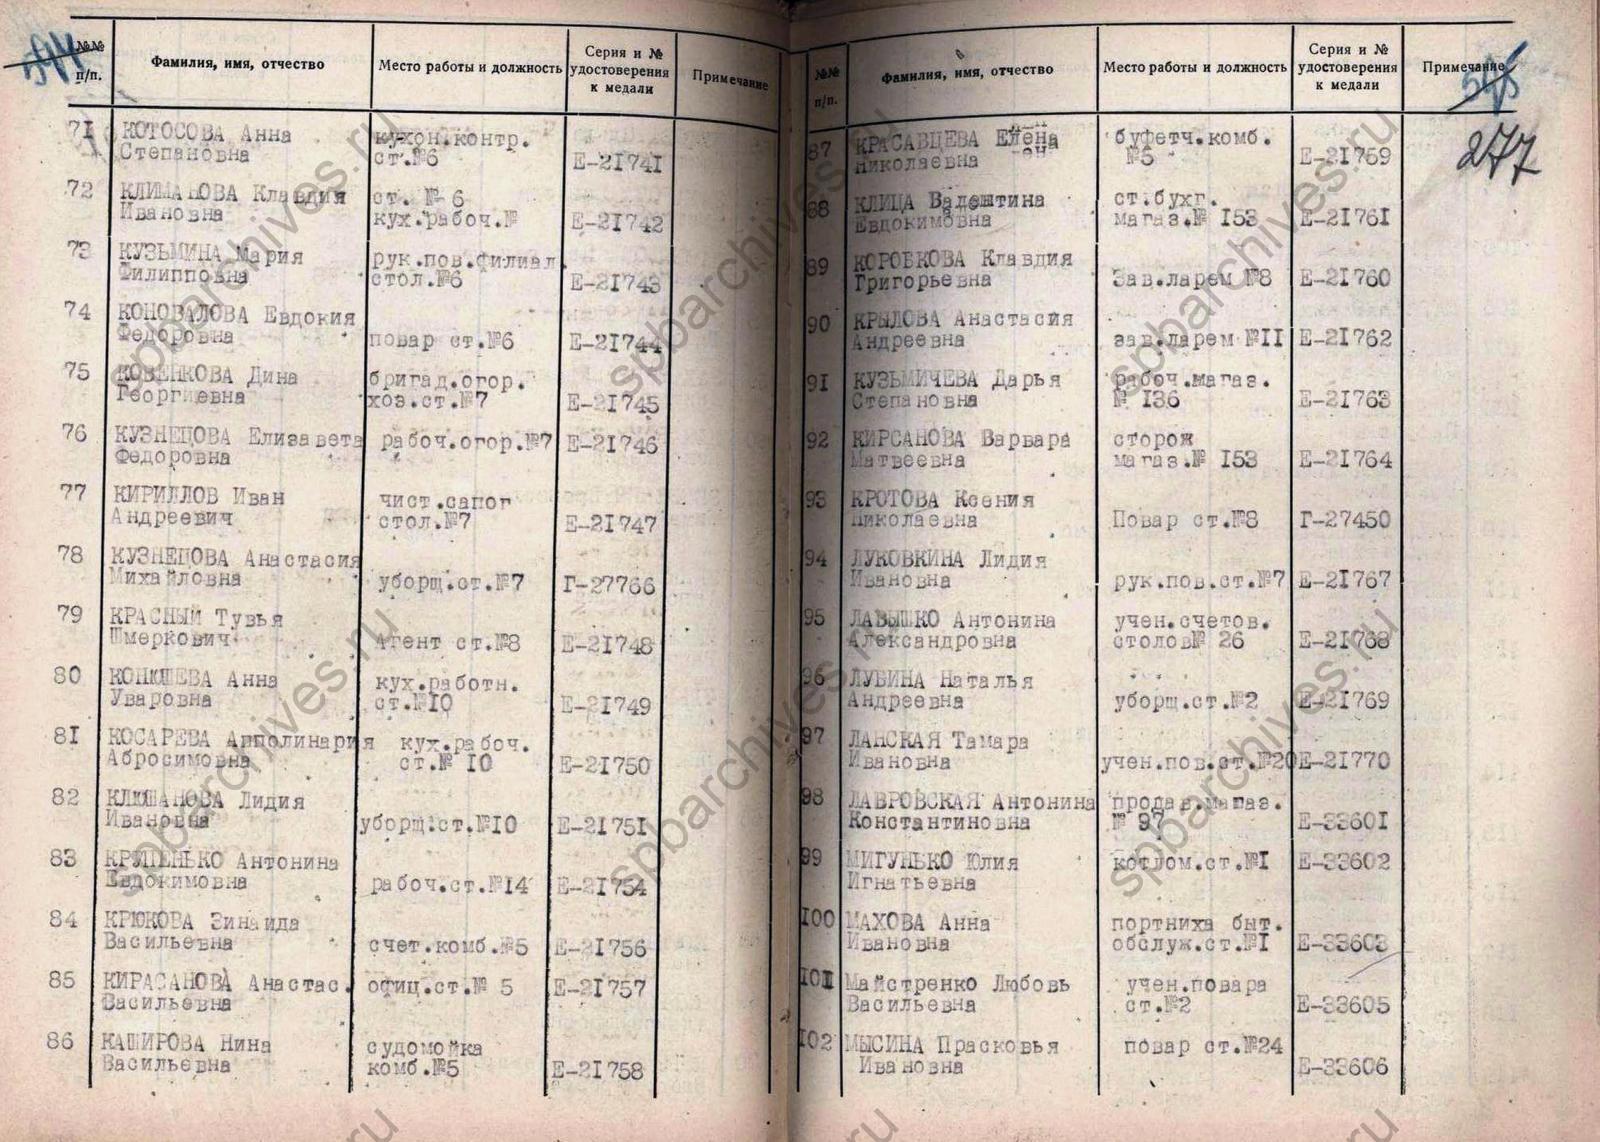 №№ п/п.
Фамилия, имя, отчество
Место работы и должность
Серия и № удостоверения к медали
Примечание
71 КОТОСОВА Анна кухон.контр.
Степановна ст.№6 Е-21741
72 КЛИМАНОВА Клавдия ст. № 6
Ивановна кух.рабоч.№ Е-21742
73 КУЗЬМИНА Мария рук.пов.филиал.
Филипповна стол.№6 Е-21743
74 КОНОВАЛОВА Евдокия
Федоровна повар ст.№6 Е-21744
75 КОВЕНКОВА Дина бригад.огор.
Георгиевна хоз.ст.№7 Е-21745
76 КУЗНЕЦОВА Елизавета рабоч.огор.№7 Е-21746
Федоровна
77 КИРИЛЛОВ Иван чист.сапог
Андреевич стол.№7 Е-21747
78 КУЗНЕЦОВА Анастасия
Михайловна уборщ.ст.№7 Г-27766
79 КРАСНЫЙ Тувья
Шмеркович Агент ст.№8 Е-21748
80 КОНЮШЕВА Анна кух.работн.
Уваровна ст.№10 Е-21749
81 КОСАРЕВА Апполинария кух.рабоч.
Абросимовна ст.№ 10 Е-21750
82 КЛЮШАНОВА Лидия
Ивановна уборщ.ст.№10 Е-21751
83 КРИПЕНЬКО Антонина
Евдокимовна рабоч.ст.№14 Е-21754
84 КРЮКОВА Зинаида
Васильевна счет.комб.№5 Е-21756
85 КИРАСАНОВА Анастас. офиц.ст.№ 5 Е-21757
Васильевна
86 КАШИРОВА Нина судомойка
Васильевна комб.№5 Е-21758
№№ п/п.
Фамилия, имя, отчество
Место работы и должность
Серия и № удостоверения к медали
Примечание
277
87 КРАСАВЦЕВА Елена буфетч.комб.
Николаевна №5 Е-21759
88 КЛИЦА Валентина ст.бухг.
Евдокимовна магаз.№ 153 Е-21761
89 КОРОБКОВА Клавдия
Григорьевна Зав.ларем №8 Е-21760
90 КРЫЛОВА Анастасия
Андреевна зав.ларем №11 Е-21762
91 КУЗЬМИЧЕВА Дарья рабоч.магаз.
Степановна № 136 Е-21763
92 КИРСАНОВА Варвара сторож
Матвеевна магаз.№ 153 Е-21764
93 КРОТОВА Ксения
Николаевна Повар ст.№8 Г-27450
94 ЛУКОВКИНА Лидия
Ивановна рук.пов.ст.№7 Е-21767
95 ЛАВЫШКО Антонина учен.счетов.
Александровна столов№ 26 Е-21768
96 ЛУБИНА Наталья
Андреевна уборщ.ст.№2 Е-21769
97 ЛАНСКАЯ Тамара
Ивановна учен.пов.ст.№20 Е-21770
98 ЛАВРОВСКАЯ Антонина продав.магаз.
Константиновна № 97 Е-33601
99 МИГУНЬКО Юлия котлом.ст.№1 Е-33602
Игнатьевна
100 МАХОВА Анна портниха быт.
Ивановна обслуж.ст.№1 Е-33603
101 Майстренко Любовь учен.повара
Васильевна ст.№2 Е-33605
102 МЫСИНА Прасковья повар ст.№24
Ивановна Е-33606
spbarchives.ru
spbarchives.ru
spbarchives.ru
spbarchives.ru
spbarchives.ru
spbarchives.ru